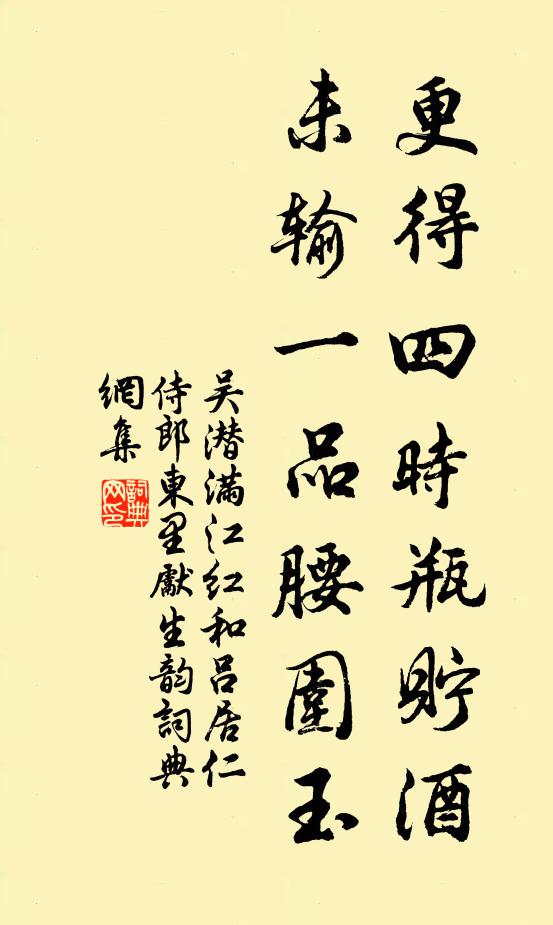 更得四時瓶貯酒
未输一品腰圍玉
吴潜满江红和吕居仁
侍郎東里獻生韵詞典
網集
詞典網印